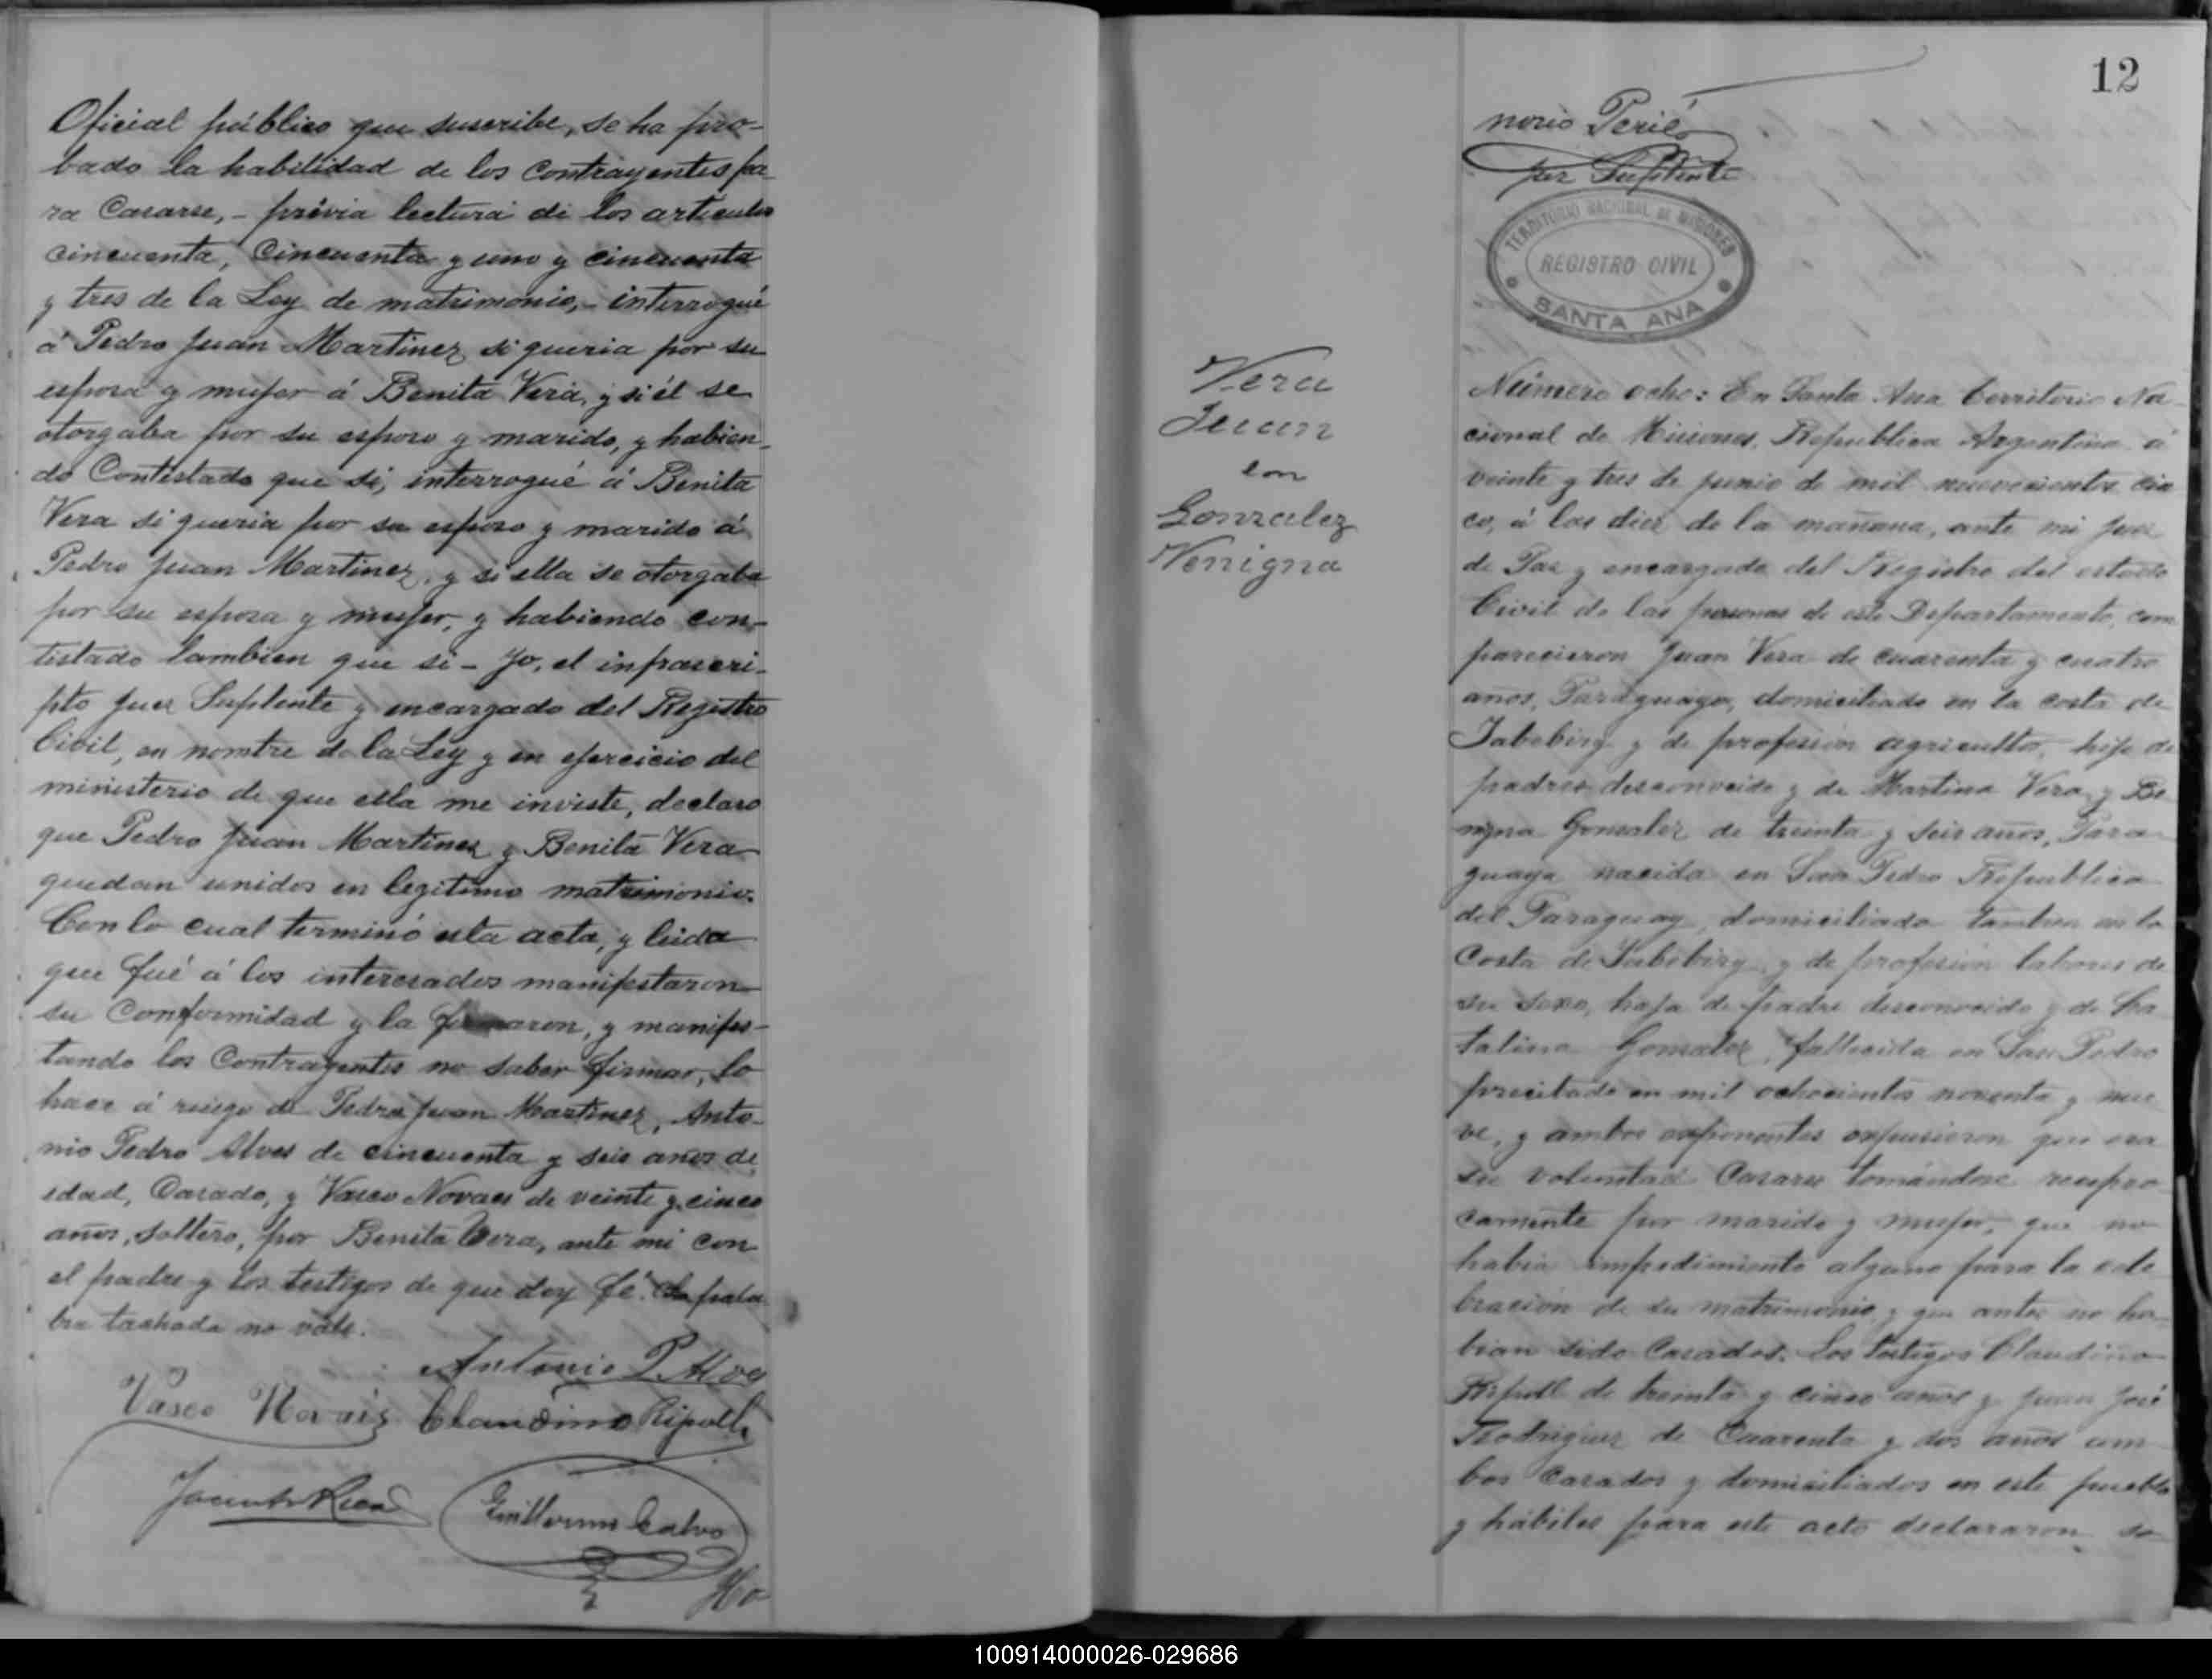 Oficial público que suscribe, se ha pro-
bado la habilidad de los Contrayentes pa
ra Casarse, - prévia lectura de los articulos
cincuenta, Cincuenta y uno y cincuenta
y tres de la Ley de matrimonio, - interrogué
á Pedro Juan Martinez si queria por su
esposa y mujer á Benita Vera, y si él se
otorgaba por su esposo y marido, y habien-
do Contestado que si, interrogué á Benita
Vera si queria por su esposo y marido á
Pedro Juan Martinez, y si ella se otorgaba
por su esposa y mujer, y habiendo con-
testado tambien que si - Yo, el infrascri-
pto Juez Suplente y encargado del Registro
Civil, en nombre de la Ley y en ejercicio del
ministerio de que ella me inviste, declaro
que Pedro Juan Martinez y Benita Vera
quedan unidos en legitimo matrimonio.
Con lo cual terminó esta acta, y leida
que fué á los interesados manifestaron
su Conformidad y la firmaron, y manifes-
tando los Contrayentes no saber firmar, lo
hace á ruego de Pedro Juan Martinez, Anto-
nio Pedro Alves de cincuenta y seis años de
edad, Casado, y Vasco Novaes de veinte y cinco
años, soltero, por Benita Vera, ante mi con
el padre y los testigos de que doy fé. La pala
bra tachada no vale.
Antonio P. Alves
Vasco Novais Claudino Ripoll
Guillermo Calvo
Ho
12
norio Perié
Juez Suplente
TERRITORIO NACIONAL DE MISIONES
REGISTRO CIVIL
SANTA ANA
Vera
Juan
con
Gonzalez
Venigna
Número ocho: En Santa Ana Territorio Na
cional de Misiones, Republica Argentina á
veinte y tres de junio de mil novecientos cin
co, á las diez de la mañana, ante mi Juez
de Paz y encargado del Registro del estado
Civil de las personas de este Departamento, com
parecieron Juan Vera de cuarenta y cuatro
años, Paraguayo, domiciliado en la costa de
Yabebiry y de profesion agricultor, hijo de
padres desconocido y de Martina Vera, y Be
nigna Gonzalez de treinta y seis años, Para
guaya nacida en San Pedro Republica
del Paraguay, domiciliada tambien en la
Costa de Yabebiry y de profesion labores de
su sexo, hija de padre desconocido y de Ca
talina Gonzalez, fallecida en San Pedro
precitado en mil ochocientos noventa y nue
ve, y ambos exponentes expusieron que era
su voluntad Casarse tomándose recipro
camente por marido y mujer, que no
habia impedimento alguno para la cele
bracion de su matrimonio y que antes no ha
bian sido Casados. Los testigos Claudino
Ripoll de treinta y cinco años y Juan José
Rodriguez de Cuarenta y dos años am
bos Casados y domiciliados en este pueblo
y hábiles para este acto declararon so
100914000026-029686